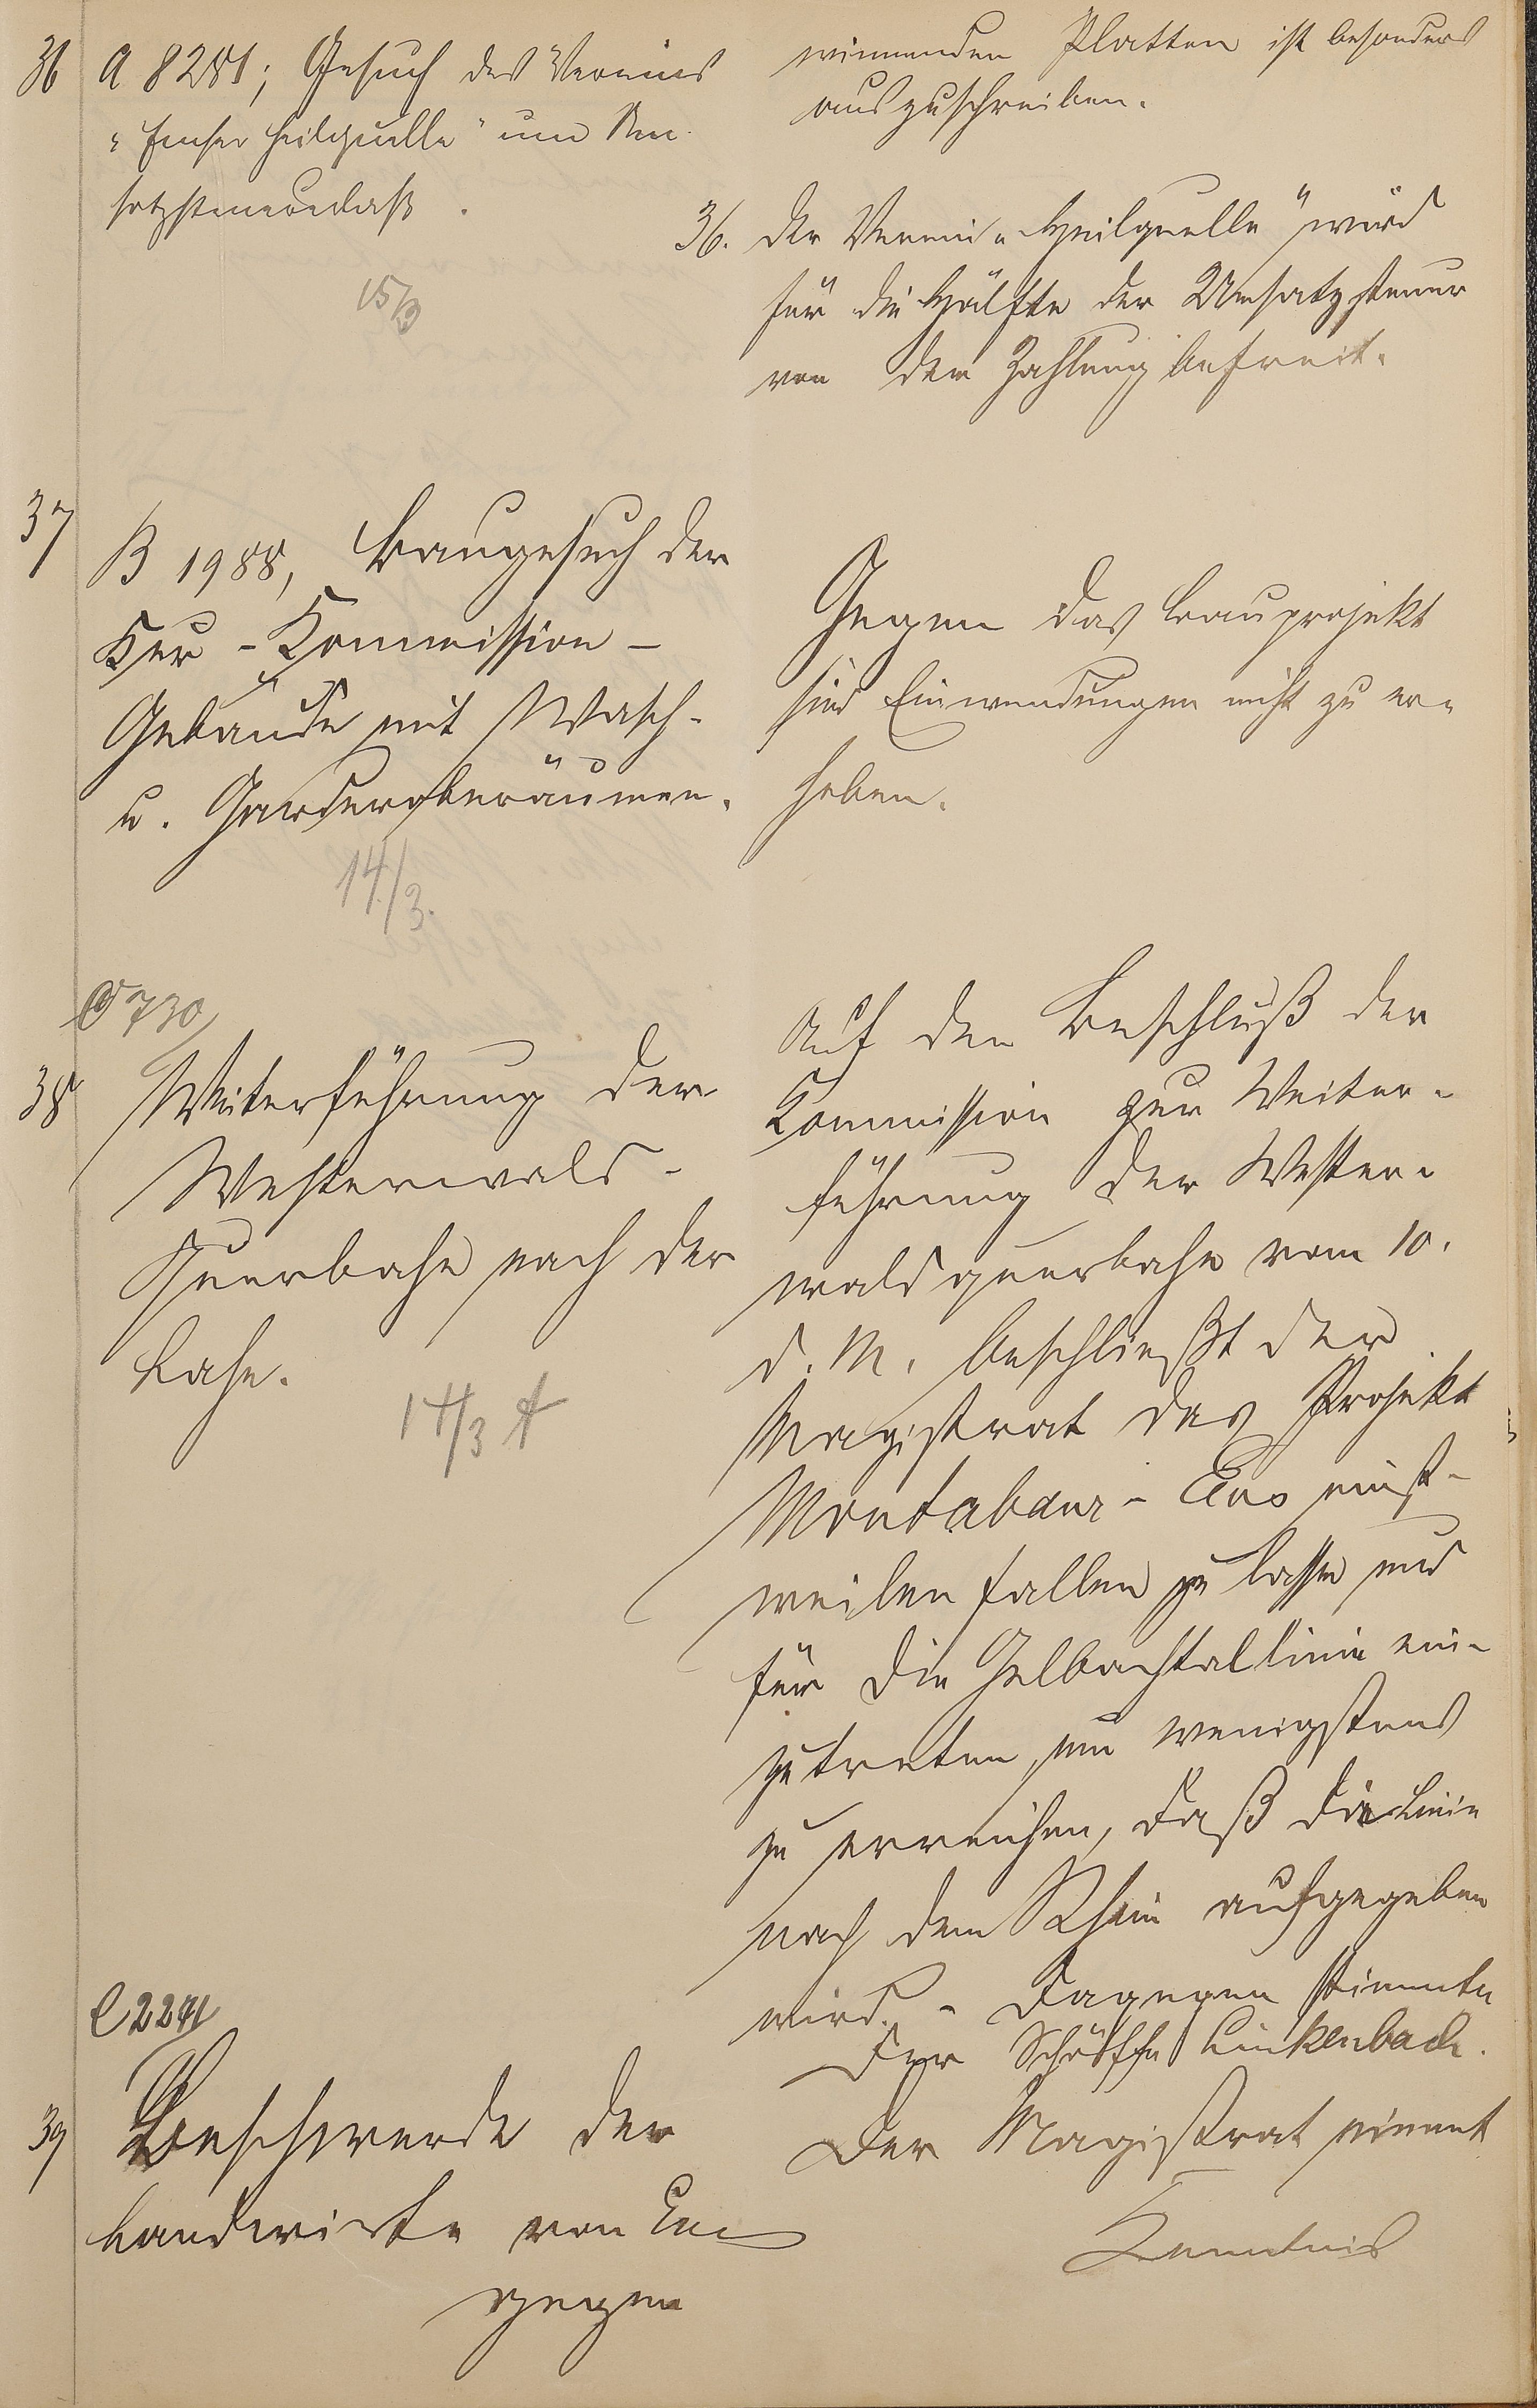 36 A 8281; Gesuch des Vereins
"Emser Heilquelle" um Um-
satzsteuererlaß.
15/3
winnenden Platten ist besonders
auszuschreiben.
36. Der Verein "Heilquelle" wird
für die Hälfte der Umsatzsteuer
von der Zahlung befreit.
37 B 1988, Baugesuch der
Kur-Kommission -
Gebäude mit Wasch-
u. Garderoberäumen.
14./3.
Gegen das Bauprojekt
sind Einwendungen nicht zu er-
heben.
C 730
38 Weiterführung der
Westerwald-
Querbahn nach der
Lahn.
14/3
Auf den Beschluß der
Kommission zur Weiter-
führung der Wester-
waldquerbahn vom 10.
d. M. beschließt der
Magistrat das Projekt
Montabaur - Ems einst-
weilen fallen zu lassen und
für die Gelbachtallinie ein-
zutreten, um wenigstens
zu erreichen, daß die Linie
nach dem Rhein aufgegeben
wird. - Dagegen stimmte
der Schöffe Linkenbach.
C 2241
39 Beschwerde der
Landwirte von Ems
gegen
Der Magistrat nimmt
Kenntnis